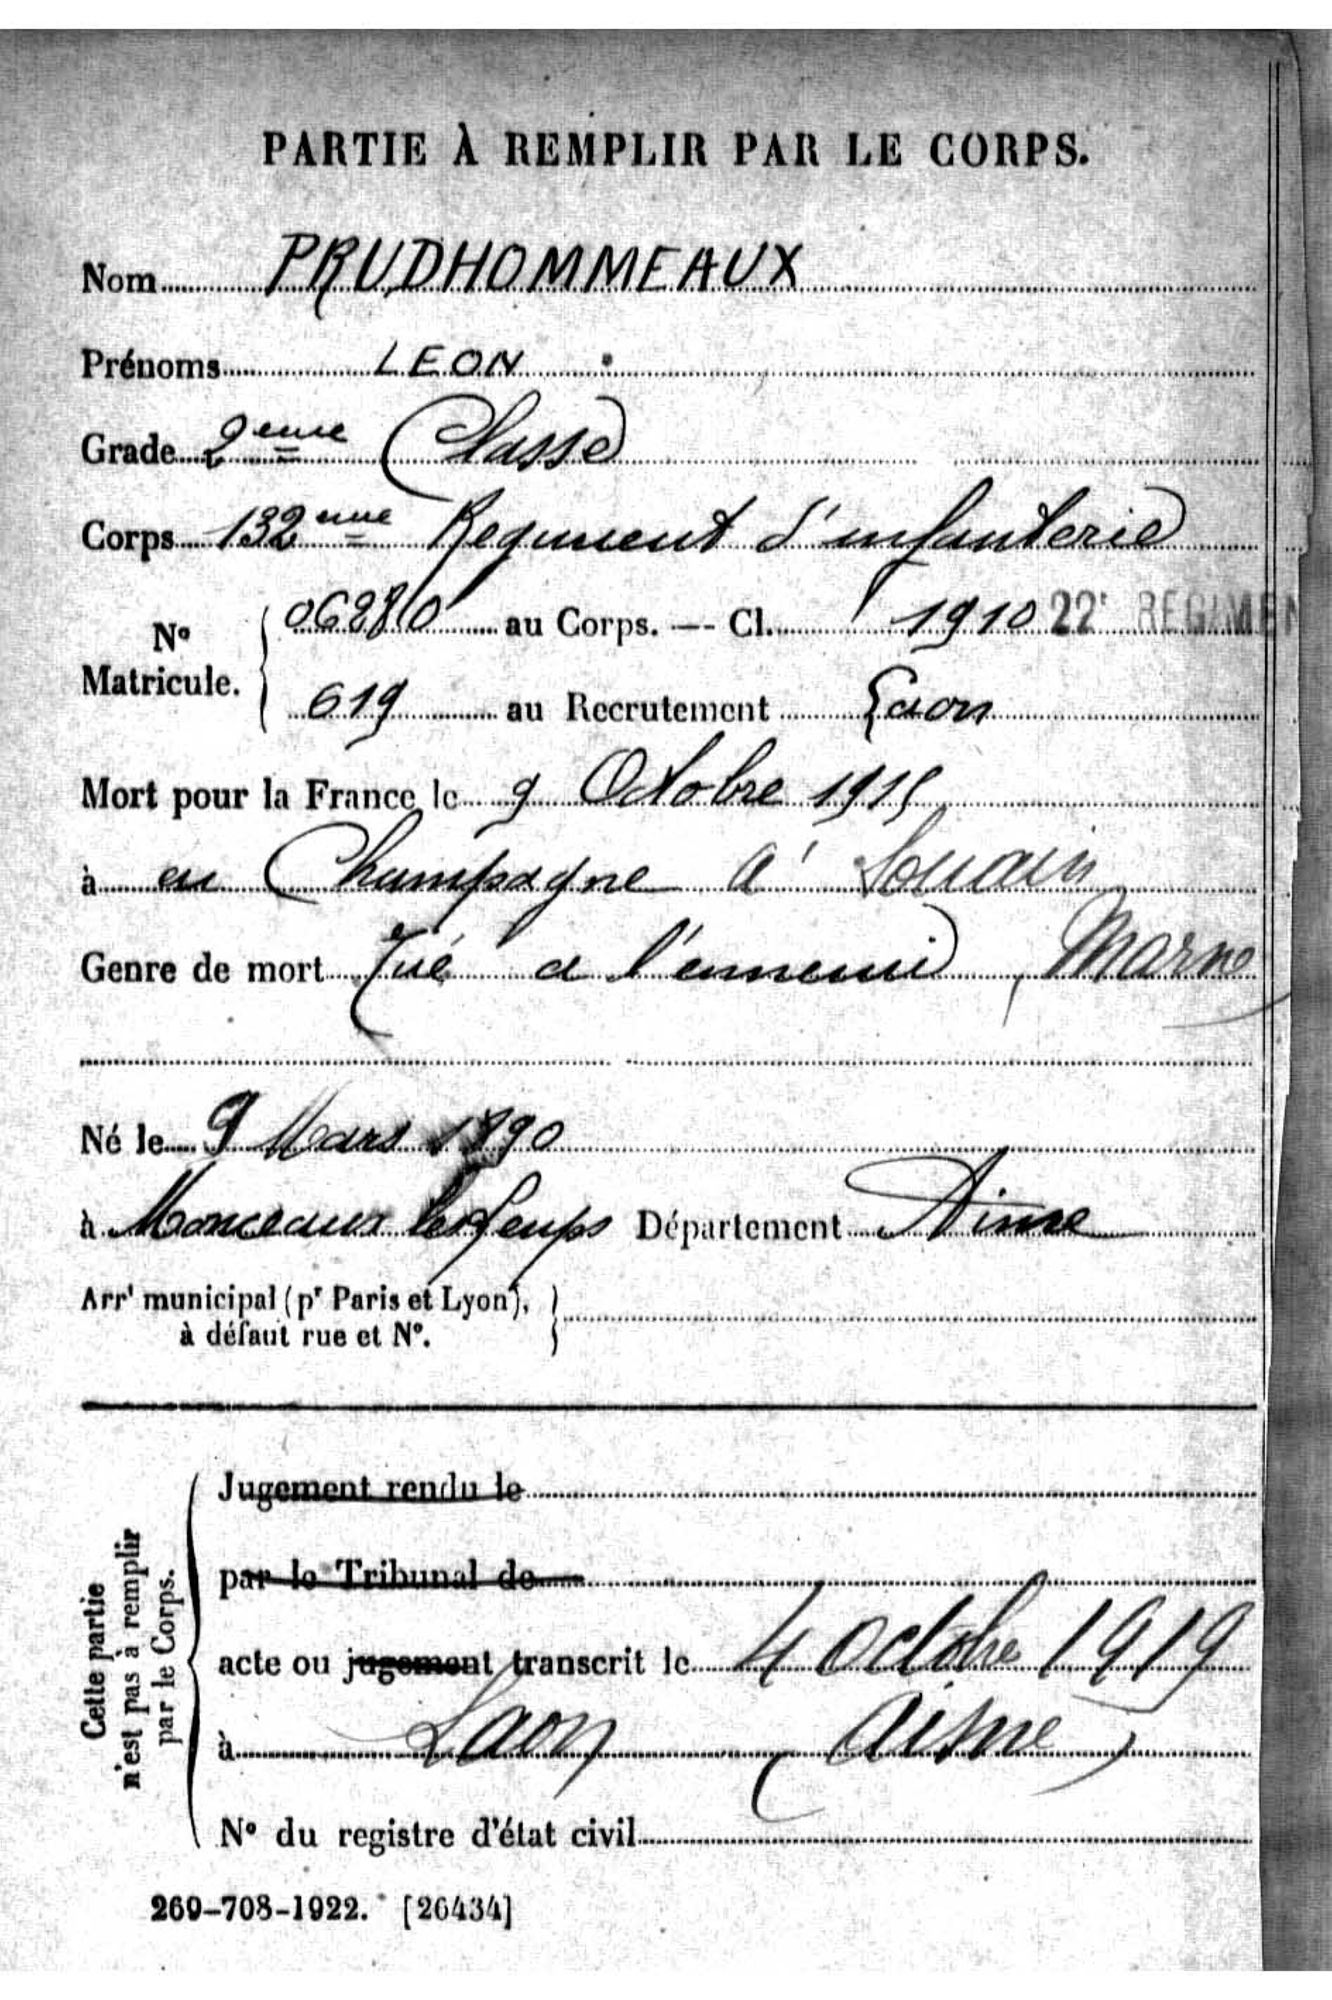 PARTIE À REMPLIR PAR LE CORPS.
Nom PRUDHOMMEAUX
Prénoms LEON
Grade 2eme Classe
Corps 132eme Regiment d'infanterie
No Matricule. 06280 au Corps. — Cl. 1910 22e REGIMEN
619 au Recrutement Laon
Mort pour la France le 9 Octobre 1915
à en Champagne à Souain
Genre de mort Tué a l'ennemi, Marne
Né le 9 Mars 1890
à Monceaux les Leups Département Aisne
Arrt municipal (pr Paris et Lyon),
à défaut rue et No.
Cette partie
n'est pas à remplir
par le Corps.
Jugement rendu le
par le Tribunal de
acte ou jugement transcrit le 4 octobre 1919
à Laon (Aisne)
No du registre d'état civil
269-708-1922. [26434]